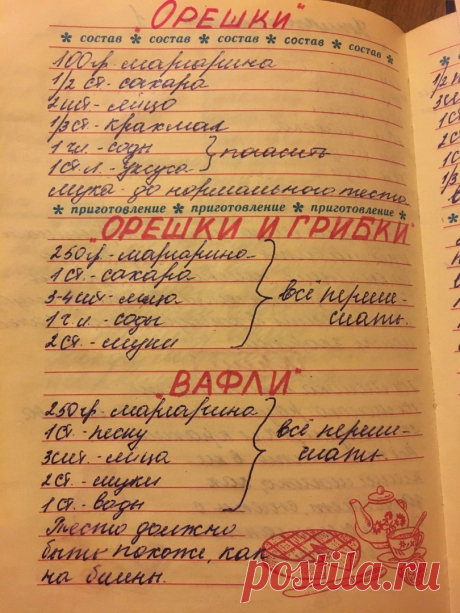 "ОРЕШКИ"
* состав * состав * состав * состав * состав *
100гр. маргарина
1/2 ст. сахара
2 шт. яйцо
1/3 ст. крахмал
1 ч.л. - соды } погасить
1 ст.л. - уксуса
мука до нормального теста
* приготовление * приготовление * приготовление *
"ОРЕШКИ И ГРИБКИ"
250гр. маргарина
1 ст. - сахара
3-4 шт. - яйца } всё переме-
1 ч.л. - соды шать.
2 ст. - муки
"ВАФЛИ"
250гр. маргарина
1 ст. - песку } всё переме-
3 шт. - яйца шать
2 ст. - муки
1 ст. - воды
Тесто должно
быть похоже, как
на блины.
postila.ru